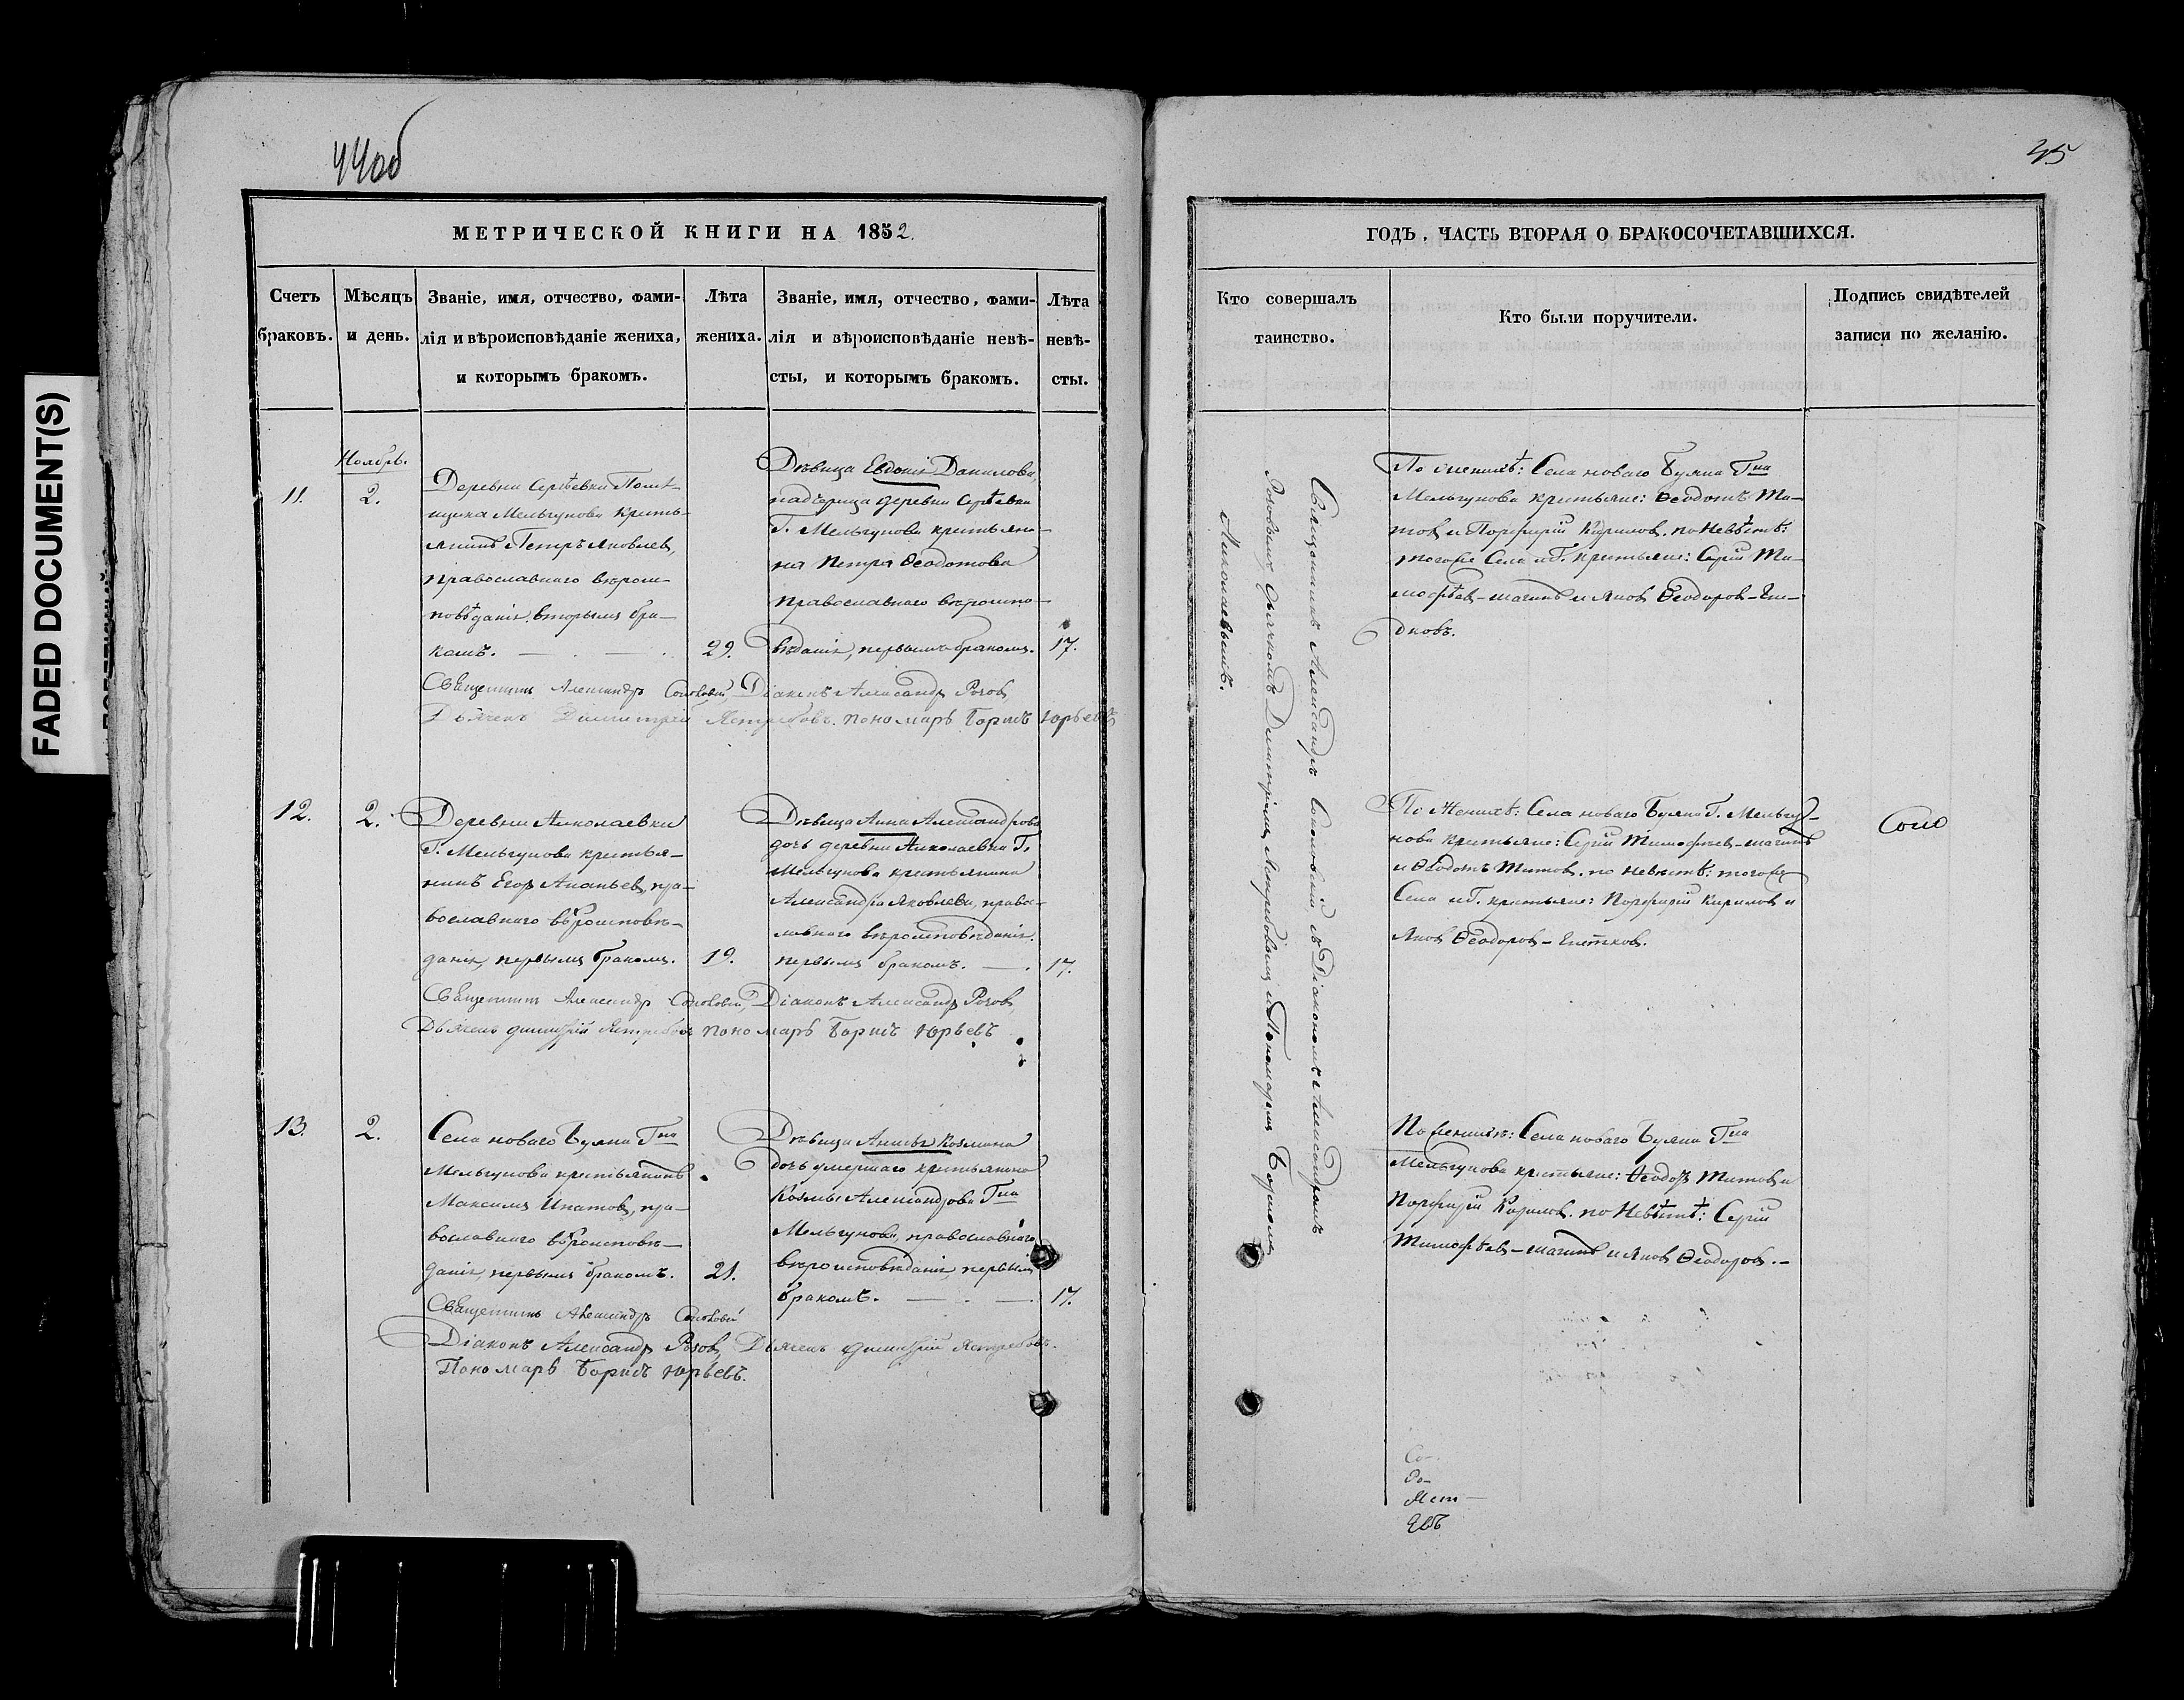 FADED DOCUMENT(S)
44об
МЕТРИЧЕСКОЙ КНИГИ НА 1852.
Счетъ браковъ.
Мѣсяцъ и день.
Званіе, имя, отчество, фами-
лія и вѣроисповѣданіе жениха,
и которымъ бракомъ.
Лѣта
жениха.
Званіе, имя, отчество, фами-
лія и вѣроисповѣданіе невѣ-
сты, и которымъ бракомъ.
Лѣта
невѣ-
сты.
11.
Ноябрь.
2.
Деревни Сергѣевки Помѣ-
щика Мельгунова кресть-
янинъ Петръ Яковлев,
православнаго вѣроис-
повѣданія, вторымъ бра-
комъ.
29.
Дѣвица Евдокія Данилова,
падчерица деревни Сергѣевки
Г. Мельгунова крестьяни-
на Петра Ѳеодотова
православнаго вѣроиспо-
вѣданія, первымъ бракомъ.
17.
Священникъ Александръ Соколовскій, Діаконъ Александр Розов,
Дьячекъ Димитрій Ястребовъ. пономарь Борисъ Юрьевъ
12.
2.
Деревни Николаевки
Г. Мельгунова крестья-
нинъ Егор Ананьев, пра-
вославнаго вѣроисповѣ-
данія, первымъ бракомъ.
19.
Дѣвица Анна Александрова
дочь деревни Николаевки Г.
Мельгунова крестьянина
Александра Яковлева, правос-
лавнаго вѣроисповѣданія.
первымъ бракомъ.
17.
Священникъ Александръ Соколовскій, Діаконъ Александр Розов,
Дьячекъ Димитрій Ястребовъ пономарь Борисъ Юрьевъ
13.
2.
Села новаго Буяна Гна
Мельгунова крестьянинъ
Максимъ Ипатов, пра-
вославнаго вѣроисповѣ-
данія, первымъ бракомъ.
21.
Дѣвица Анисья Козмина
дочь умершаго крестьянина
Козмы Александрова Гна
Мельгунова, православнаго
вѣроисповѣданія, первымъ
бракомъ.
17.
Священникъ Александръ Соколовскій
Діаконъ Александр Розов, Дьячекъ Димитрій Ястребовъ.
Пономарь Борисъ Юрьевъ.
45
ГОДЪ, ЧАСТЬ ВТОРАЯ О БРАКОСОЧЕТАВШИХСЯ.
Кто совершалъ
таинство.
Кто были поручители.
Подпись свидѣтелей
записи по желанію.
Священникъ Александръ Соколовскій, съ Діакономъ Александромъ
Розовымъ, Дьячкомъ Димитріемъ Ястребовымъ и Пономаремъ Борисомъ
Николаевымъ.
По женихѣ: Села новаго Буяна Гна
Мельгунова крестьяне: Ѳеодотъ Ти-
тов и Порфирій Кирилов. по Невѣстѣ:
тогоже Села и Г. крестьяне: Сергій Ти-
мофѣев-
и Яков Ѳеодоров-
По Женихѣ: Села новаго Буяна Г. Мельгу-
нова крестьяне: Сергій Тимофѣев-
и Ѳеодотъ Титов. по невѣстѣ: тогоже
Села и Г. крестьяне: Порфирій Кирилов и
Яков Ѳеодоров-
По женихѣ: Села новаго Буяна Гна
Мельгунова крестьяне: Ѳеодоръ Титов и
Порфирій Кирилов. по Невѣстѣ: Сергій
Тимофѣев-
и Яков Ѳеодоров.
Со-
Ро-
Яст-